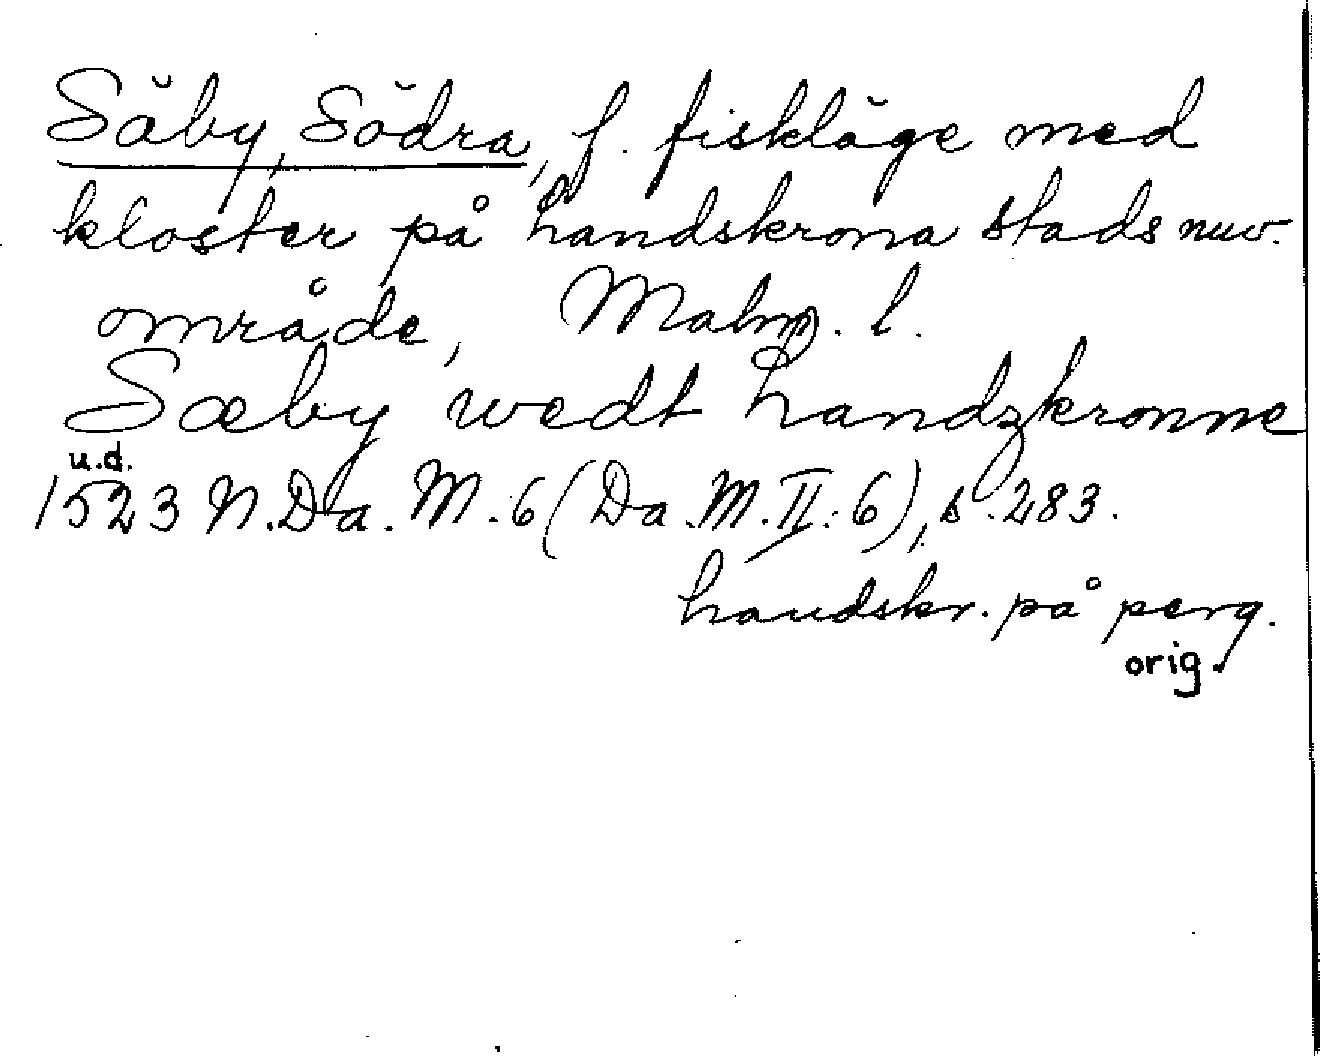 Säby, Södra, f. fiskläge med
kloster på Landskrona stads nuv.
område, Malm. l.
Sæby wedt Landzkronne
u.d.
1523 N.Da.M.6 (Da.M.II:6), s.283.
handskr. på perg.
orig.